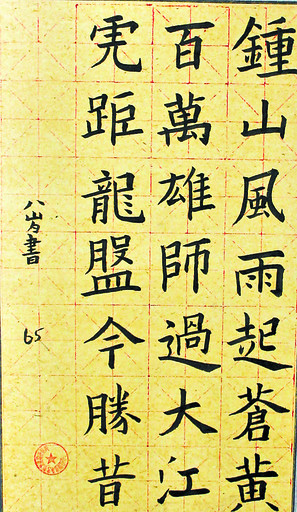 鍾山風雨起蒼黄
百萬雄師過大江
虎距龍盤今勝昔
八岁書
65